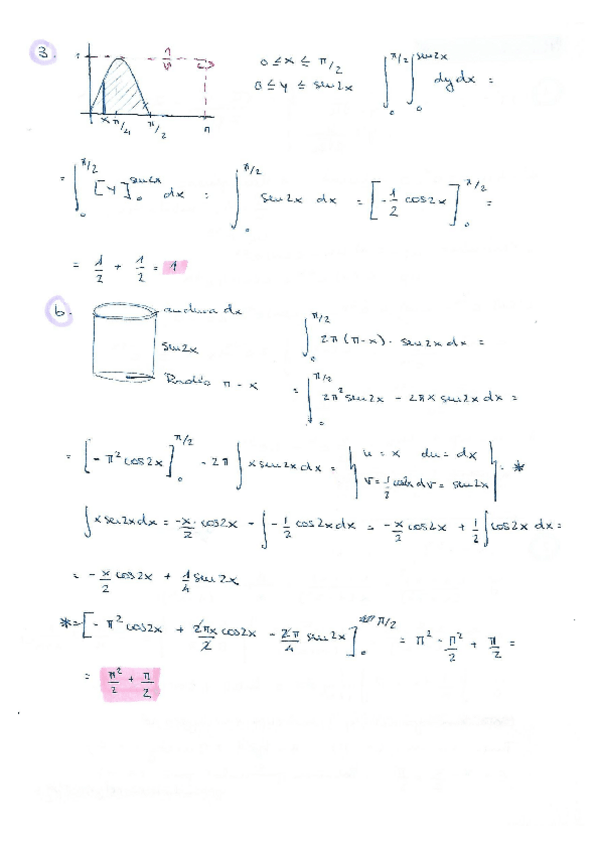 3.
1
x π/4 π/2 π
0 ≤ x ≤ π/2
0 ≤ y ≤ sin2x
∫₀^{π/2} ∫₀^{sin2x} dy dx =
= ∫₀^{π/2} [y]₀^{sin2x} dx = ∫₀^{π/2} sin2x dx = [-1/2 cos2x]₀^{π/2} =
= 1/2 + 1/2 = 1
b.
anchura dx
sin2x
Radio π - x
∫₀^{π/2} 2π(π-x) · sin2x dx =
= ∫₀^{π/2} 2π² sin2x - 2πx sin2x dx =
= [-π² cos2x]₀^{π/2} - 2π ∫ x sin2x dx = { u = x du = dx
v = 1/2 cos2x dv = sin2x } · *
∫ x sin2x dx = -x/2 · cos2x - ∫ -1/2 cos2x dx = -x/2 cos2x + 1/2 ∫ cos2x dx =
= -x/2 cos2x + 1/4 sin2x
* = [-π² cos2x + 2πx/2 cos2x - 2π/4 sin2x]₀^{π/2} = π² - π²/2 + π/2 =
= π²/2 + π/2